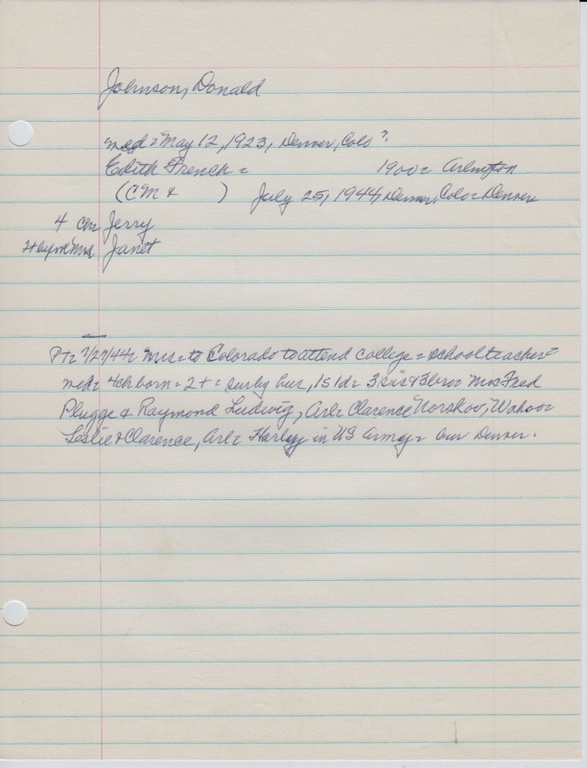 Johnson, Donald
med = May 12, 1923, Denver, Colo ?
Edith French = 1900 = Arlington
(CM & ) July 25, 1944, Denver, Colo = Denver
4 Chn Jerry
Janet
Pt = 7/27/44 = mvs = to Colorado to attend college = school teacher =
med = 4 ch born = 2+ = surby hus, 1s 1d = 3 sis & 3 bro = Mrs Fred
Plugge & Raymond Ludwig, Arl = Clarence Norskov, Wahoo =
Leslie & Clarence, Arl = Harley in US Army = bur Denver.